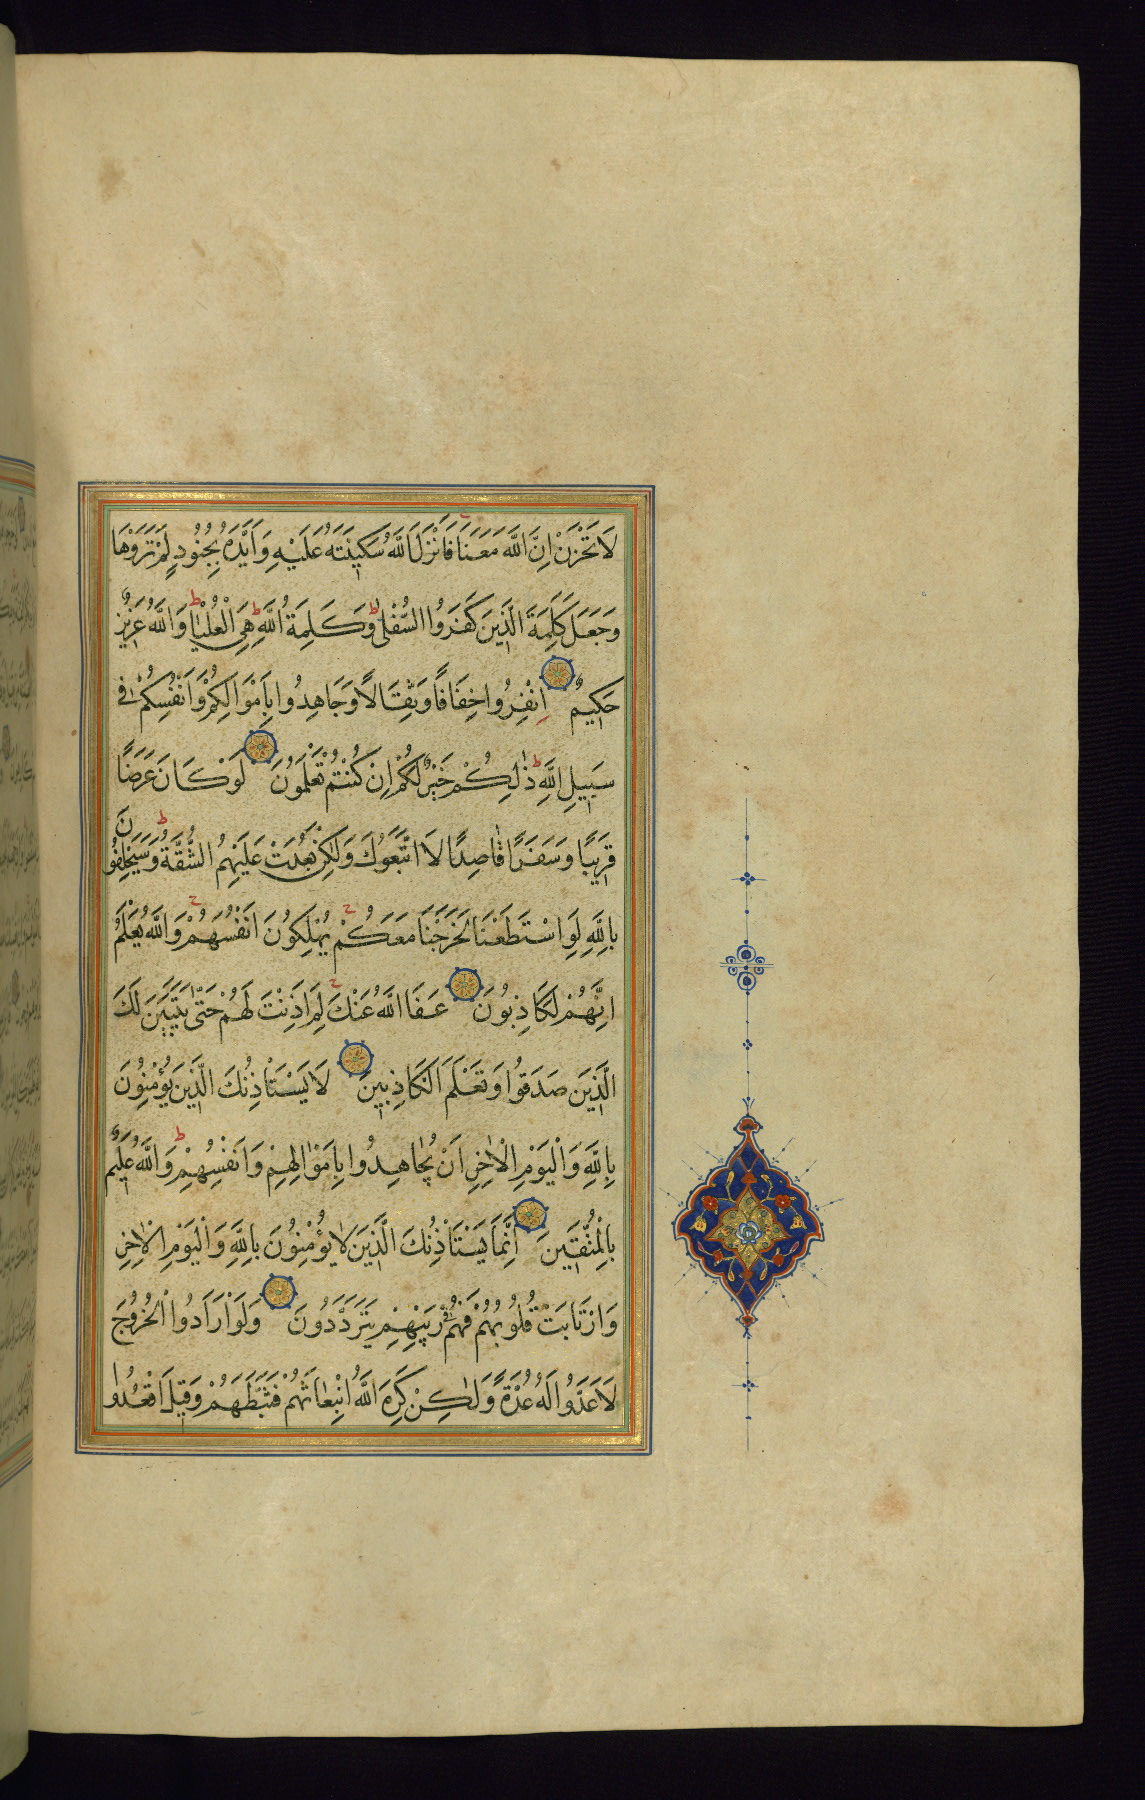 لَا تَحْزَنْ اِنَّ اللّٰهَ مَعَنَا فَاَنْزَلَ اللّٰهُ سَكِينَتَهُ عَلَيْهِ وَاَيَّدَهُ بِجُنُودٍ لَمْ تَرَوْهَا
وَجَعَلَ كَلِمَةَ الَّذِينَ كَفَرُوا السُّفْلٰى وَكَلِمَةُ اللّٰهِ هِيَ الْعُلْيَا وَاللّٰهُ عَزِيزٌ
حَكِيمٌ اِنْفِرُوا خِفَافًا وَثِقَالًا وَجَاهِدُوا بِاَمْوَالِكُمْ وَاَنْفُسِكُمْ فِي
سَبِيلِ اللّٰهِ ذٰلِكُمْ خَيْرٌ لَكُمْ اِنْ كُنْتُمْ تَعْلَمُونَ لَوْ كَانَ عَرَضًا
قَرِيبًا وَسَفَرًا قَاصِدًا لَاتَّبَعُوكَ وَلٰكِنْ بَعُدَتْ عَلَيْهِمُ الشُّقَّةُ وَسَيَحْلِفُونَ
بِاللّٰهِ لَوِ اسْتَطَعْنَا لَخَرَجْنَا مَعَكُمْ يُهْلِكُونَ اَنْفُسَهُمْ وَاللّٰهُ يَعْلَمُ
اِنَّهُمْ لَكَاذِبُونَ عَفَا اللّٰهُ عَنْكَ لِمَ اَذِنْتَ لَهُمْ حَتّٰى يَتَبَيَّنَ لَكَ
الَّذِينَ صَدَقُوا وَتَعْلَمَ الْكَاذِبِينَ لَا يَسْتَاْذِنُكَ الَّذِينَ يُؤْمِنُونَ
بِاللّٰهِ وَالْيَوْمِ الْاٰخِرِ اَنْ يُجَاهِدُوا بِاَمْوَالِهِمْ وَاَنْفُسِهِمْ وَاللّٰهُ عَلِيمٌ
بِالْمُتَّقِينَ اِنَّمَا يَسْتَاْذِنُكَ الَّذِينَ لَا يُؤْمِنُونَ بِاللّٰهِ وَالْيَوْمِ الْاٰخِرِ
وَارْتَابَتْ قُلُوبُهُمْ فَهُمْ فِي رَيْبِهِمْ يَتَرَدَّدُونَ وَلَوْ اَرَادُوا الْخُرُوجَ
لَاَعَدُّوا لَهُ عُدَّةً وَلٰكِنْ كَرِهَ اللّٰهُ انْبِعَاثَهُمْ فَثَبَّطَهُمْ وَقِيلَ اقْعُدُوا